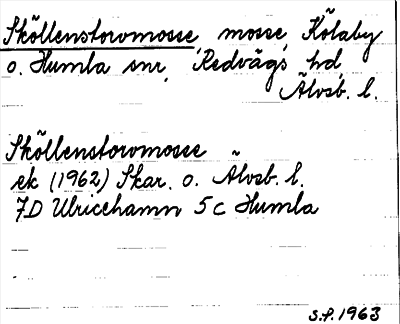 Sköllenstorvmosse mosse Kölaby
o. Humla snr, Redvägs hd,
Älvsb. l.
Sköllenstorvmosse
ek (1962) Skar. o. Älvsb. l.
7D Ulricehamn 5c Humla
S.P. 1963